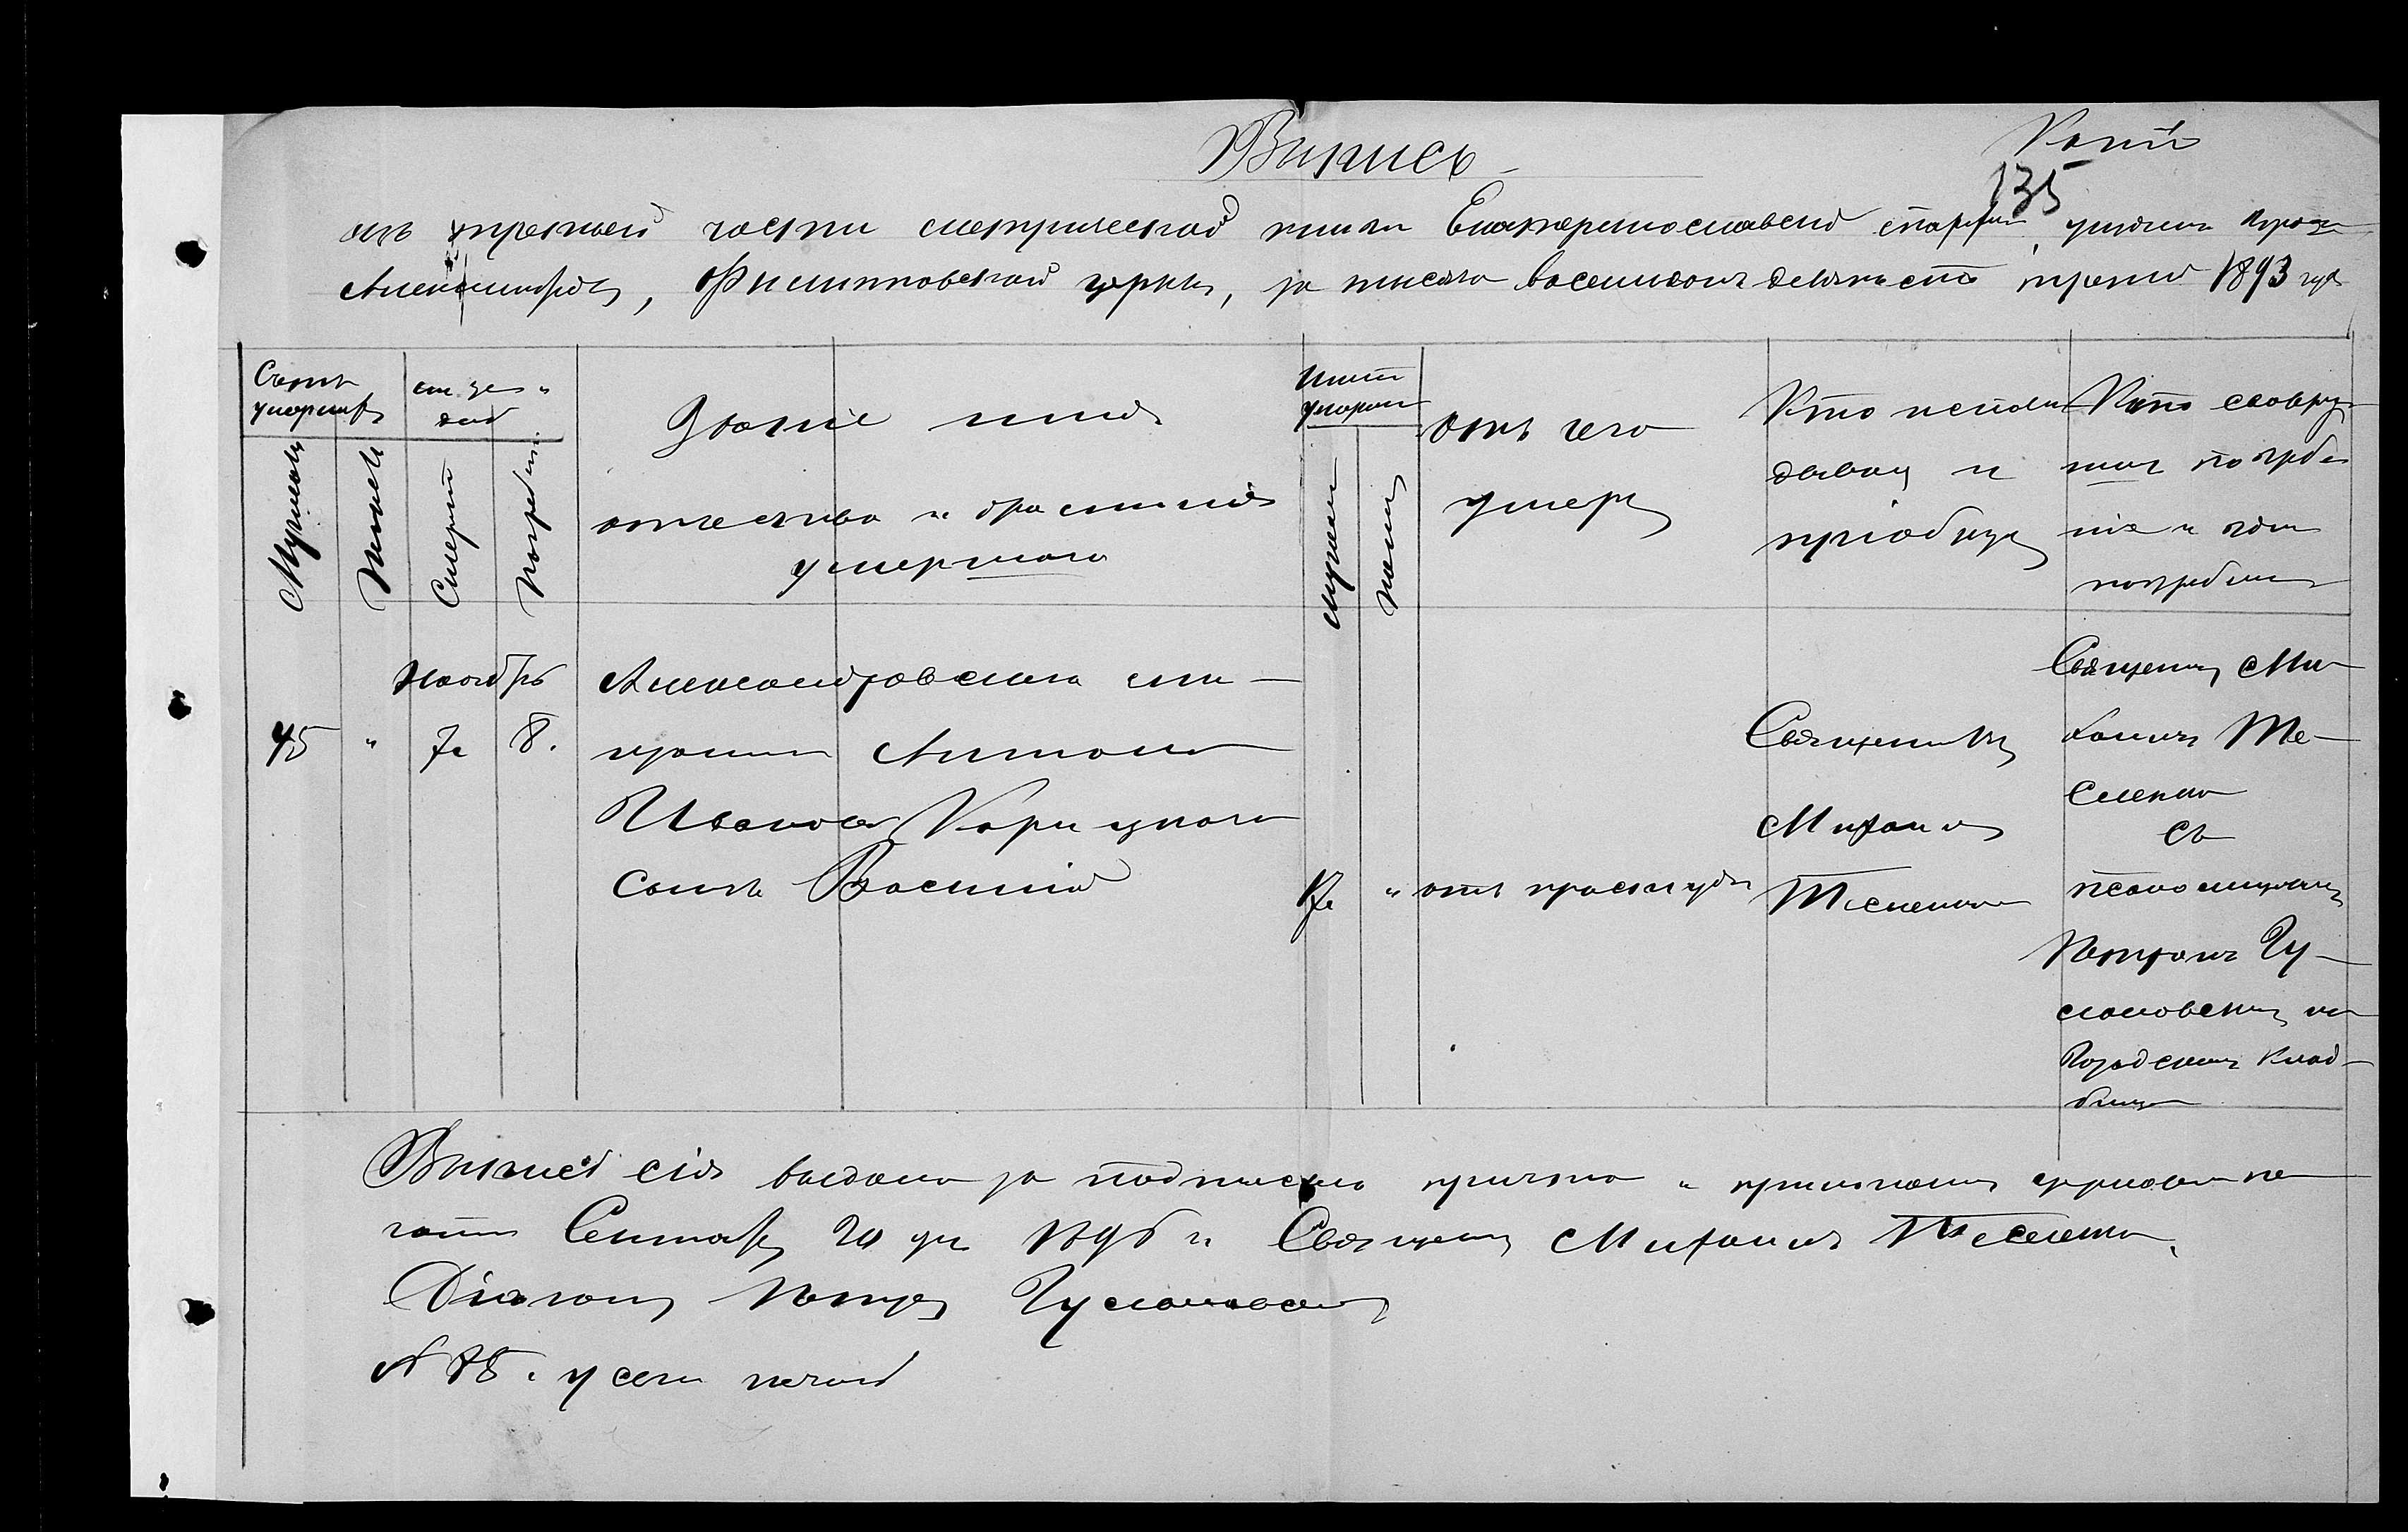 Копія
Выпись
135
изъ третьей части метрической книги Екатеринославской епархіи, уѣзднаго города
Александровска, Филипповской церкви, за тысяча восемьсотъ девяносто третій 1893 годъ
Счетъ умершихъ
Мужеска
Женска
дней
Смерти
Погребенія
Званіе имя
отчество и фамилія
умершаго
Лѣта умершаго
Мужска
Женска
отъ чего
умеръ
Кто исповѣ
дывалъ и
пріобщалъ
Кто совер
шалъ погребе
ніе и гдѣ
погребены
Ноябрь
45 " 7. 8.
Александровскаго мѣ-
щанина Антона
Иванова Корицкаго
сынъ Василій
" отъ простуды
Священникъ
Михаилъ
Тесленко
Священникъ Ми-
хаилъ Те-
сленко
съ
псаломщикомъ
Петромъ Гу-
слановскимъ на
Городскомъ Клад-
бищѣ
Выпись сія выдана за подписью причта и приложеніемъ церковной пе-
чати Сентября 20 дня Священникъ Михаилъ Тесленко.
Діаконъ Петръ
№ 78. у сего печать